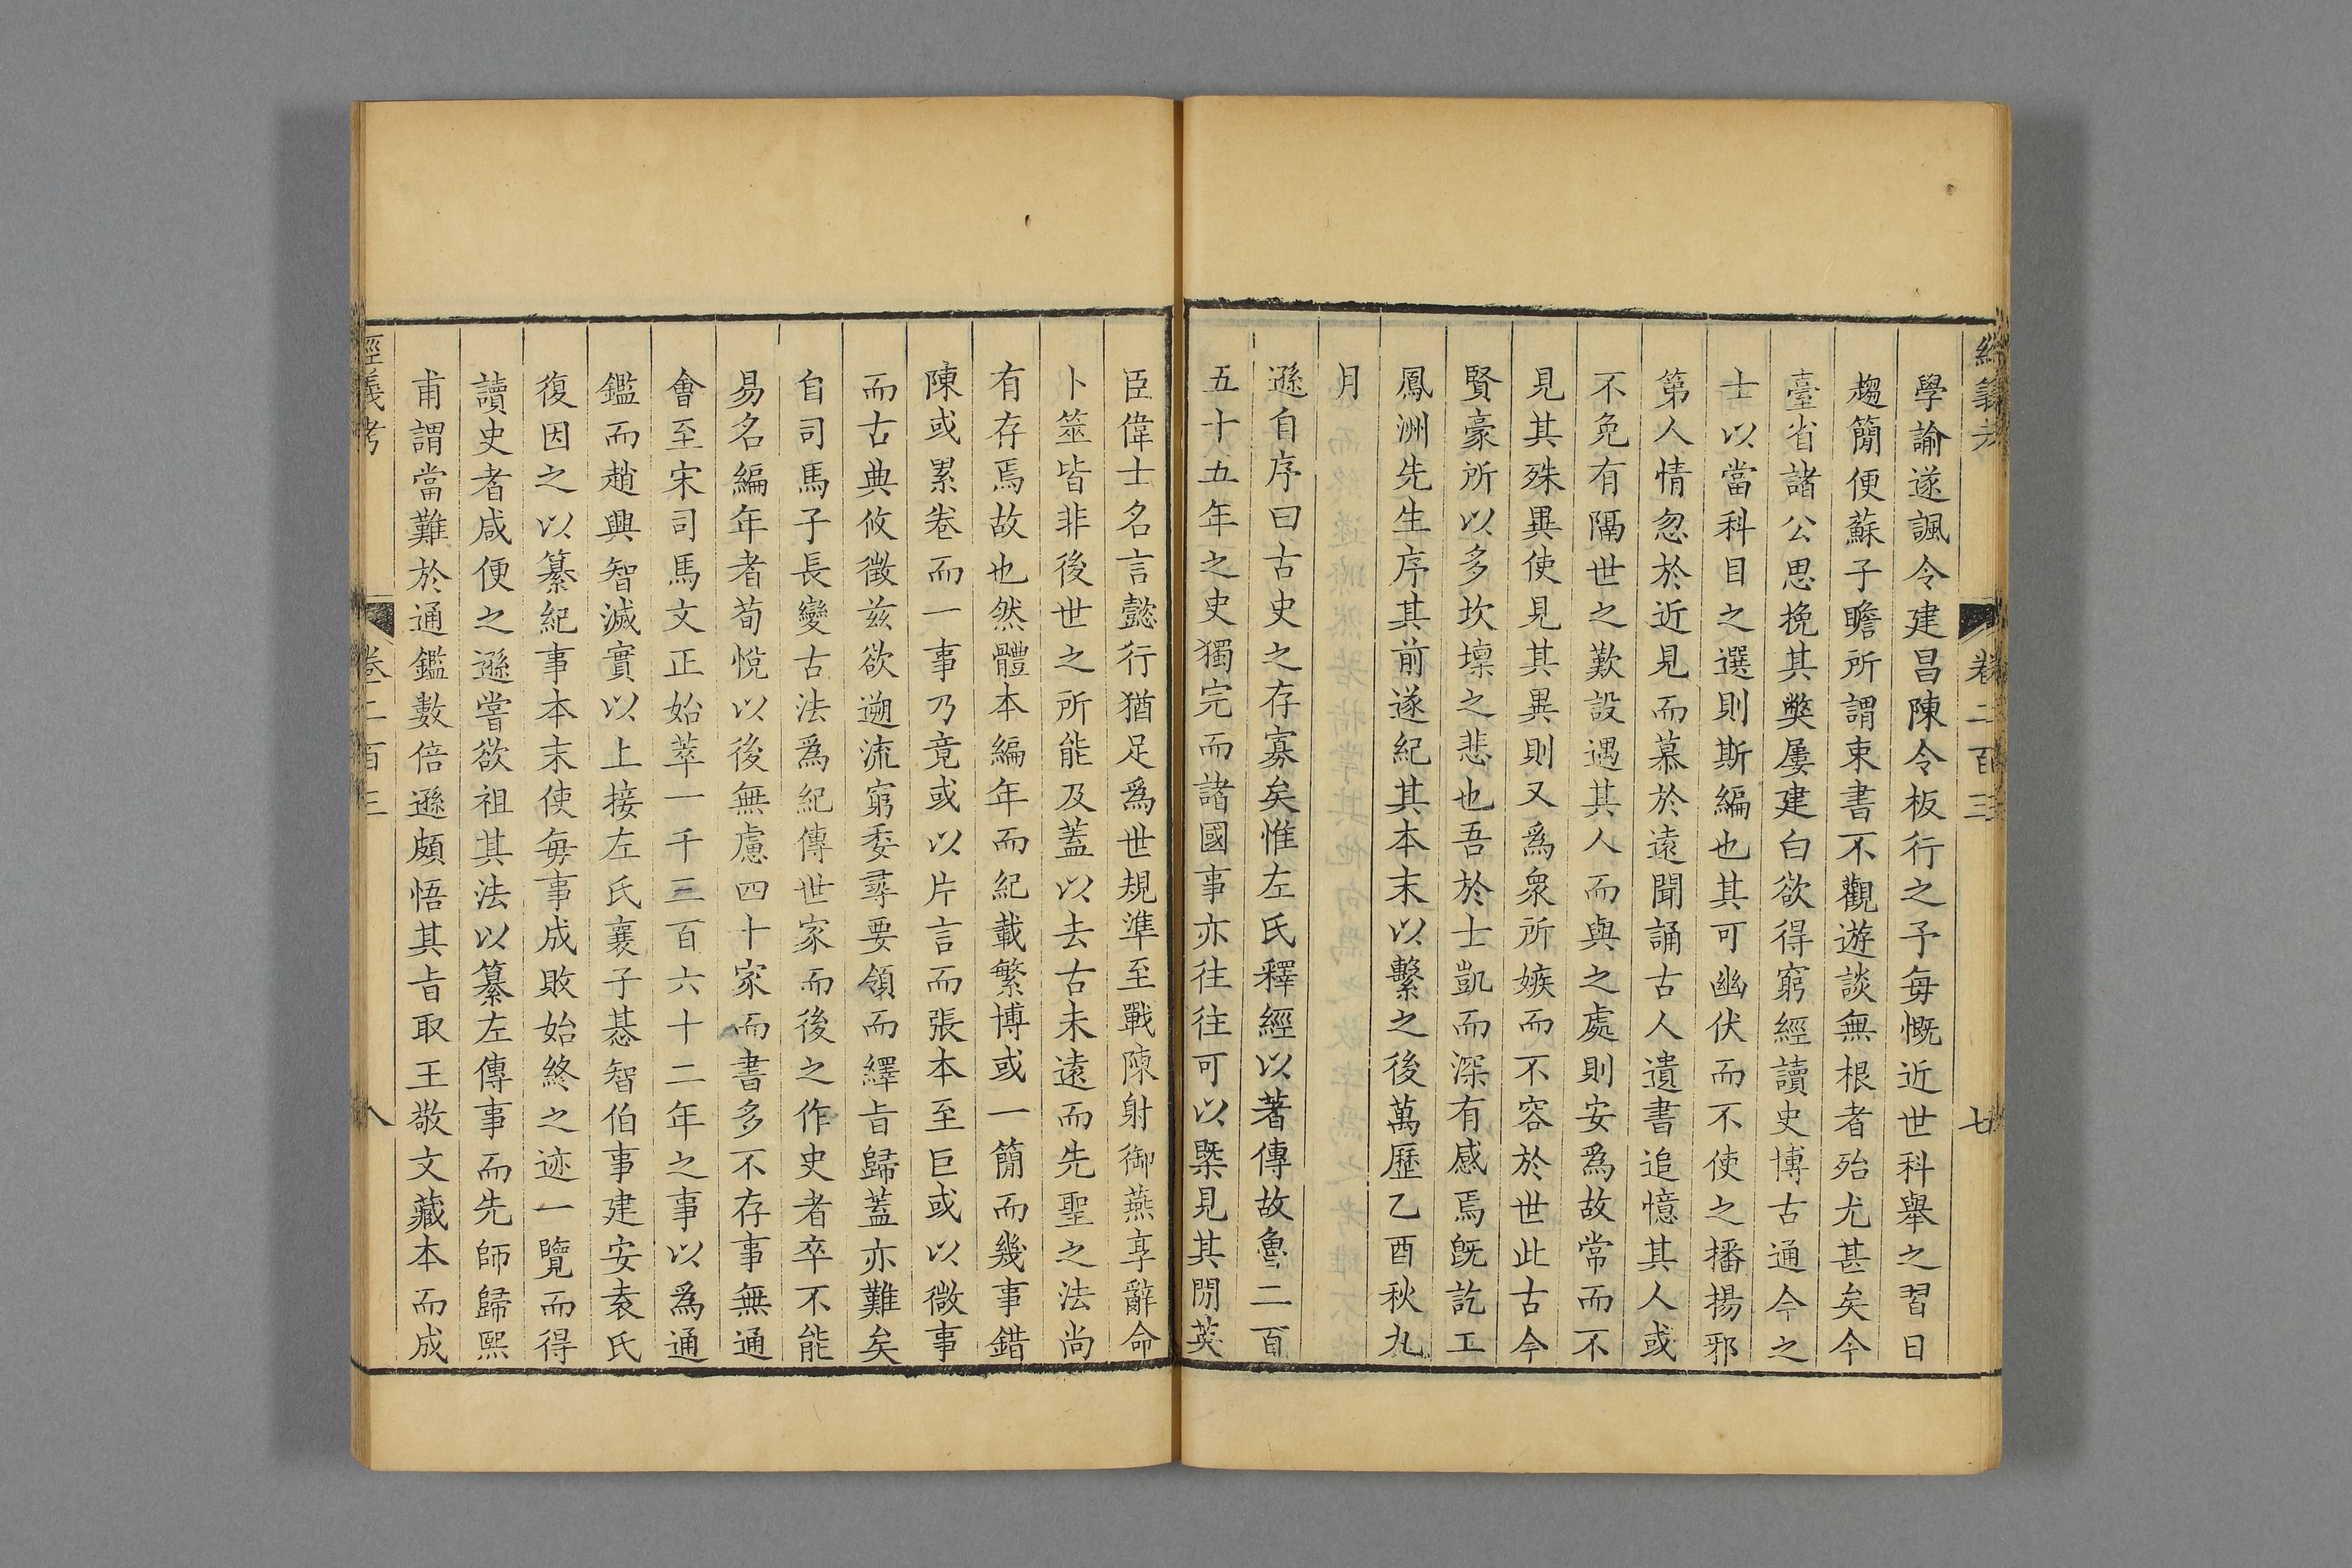 經義考 卷二百三 七
學諭遂諷令建昌陳令板行之予每慨近世科舉之習日
趨簡便蘇子瞻所謂束書不觀遊談無根者殆尤甚矣今
臺省諸公思挽其獘屢建白欲得窮經讀史博古通今之
士以當科目之選則斯編也其可幽伏而不使之播揚邪
第人情忽於近見而慕於遠聞誦古人遺書追憶其人或
不免有隔世之歎設遇其人而與之處則安爲故常而不
見其殊異使見其異則又爲衆所嫉而不容於世此古今
賢豪所以多坎壈之悲也吾於士凱而深有感焉旣訖工
鳳洲先生序其前遂紀其本末以繫之後萬歷乙酉秋九
月
遜自序曰古史之存寡矣惟左氏釋經以著傳故魯二百
五十五年之史獨完而諸國事亦往往可以槩見其間英
臣偉士名言懿行猶足爲世規準至戰陳射御燕享辭命
卜筮皆非後世之所能及蓋以去古未遠而先聖之法尚
有存焉故也然體本編年而紀載繁博或一簡而幾事錯
陳或累卷而一事乃竟或以片言而張本至巨或以微事
而古典攸徵兹欲遡流窮委尋要領而繹旨歸蓋亦難矣
自司馬子長變古法爲紀傳世家而後之作史者卒不能
易名編年者荀悅以後無慮四十家而書多不存事無通
會至宋司馬文正始萃一千三百六十二年之事以爲通
鑑而趙興智滅實以上接左氏襄子惎智伯事建安袁氏
復因之以纂紀事本末使每事成敗始終之迹一覽而得
讀史者咸便之遜嘗欲祖其法以纂左傳事而先師歸熙
甫謂當難於通鑑數倍遜頗悟其旨取王敬文藏本而成
經義考 卷二百三 八